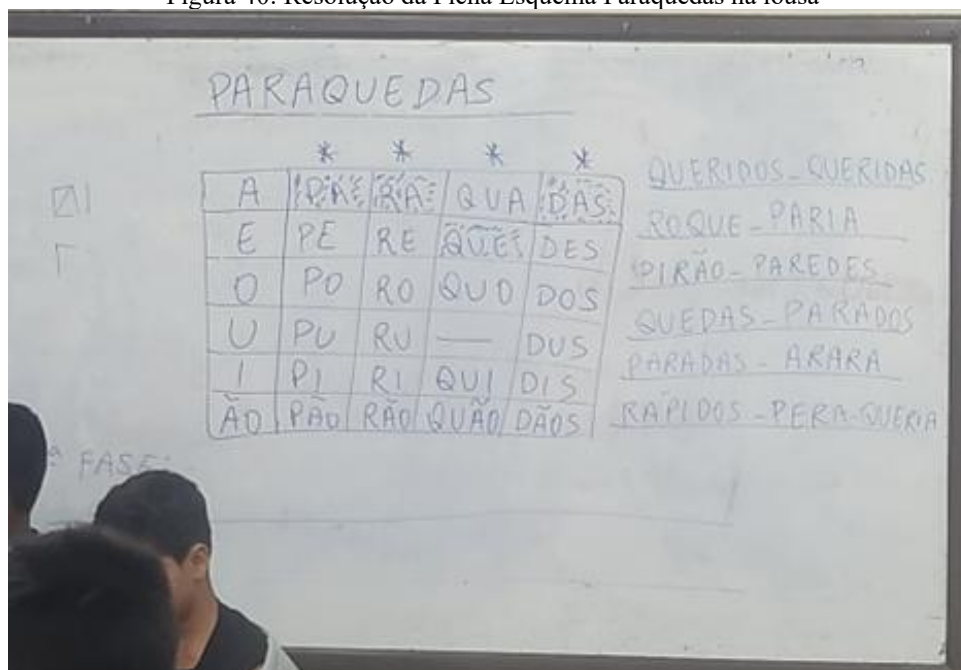 Figura 40: Resolução da Ficha Esquema Paraquedas na lousa
PARAQUEDAS
* * * *
A PA RA QUA DAS
E PE RE QUE DES
O PO RO QUO DOS
U PU RU — DUS
I PI RI QUI DIS
ÃO PÃO RÃO QUÃO DÃOS
QUERIDOS - QUERIDAS
ROQUE - PARIA
PIRÃO - PAREDES
QUEDAS - PARADOS
PARADAS - ARARA
RAPIDOS - PERA - QUERIA
ª FASE: